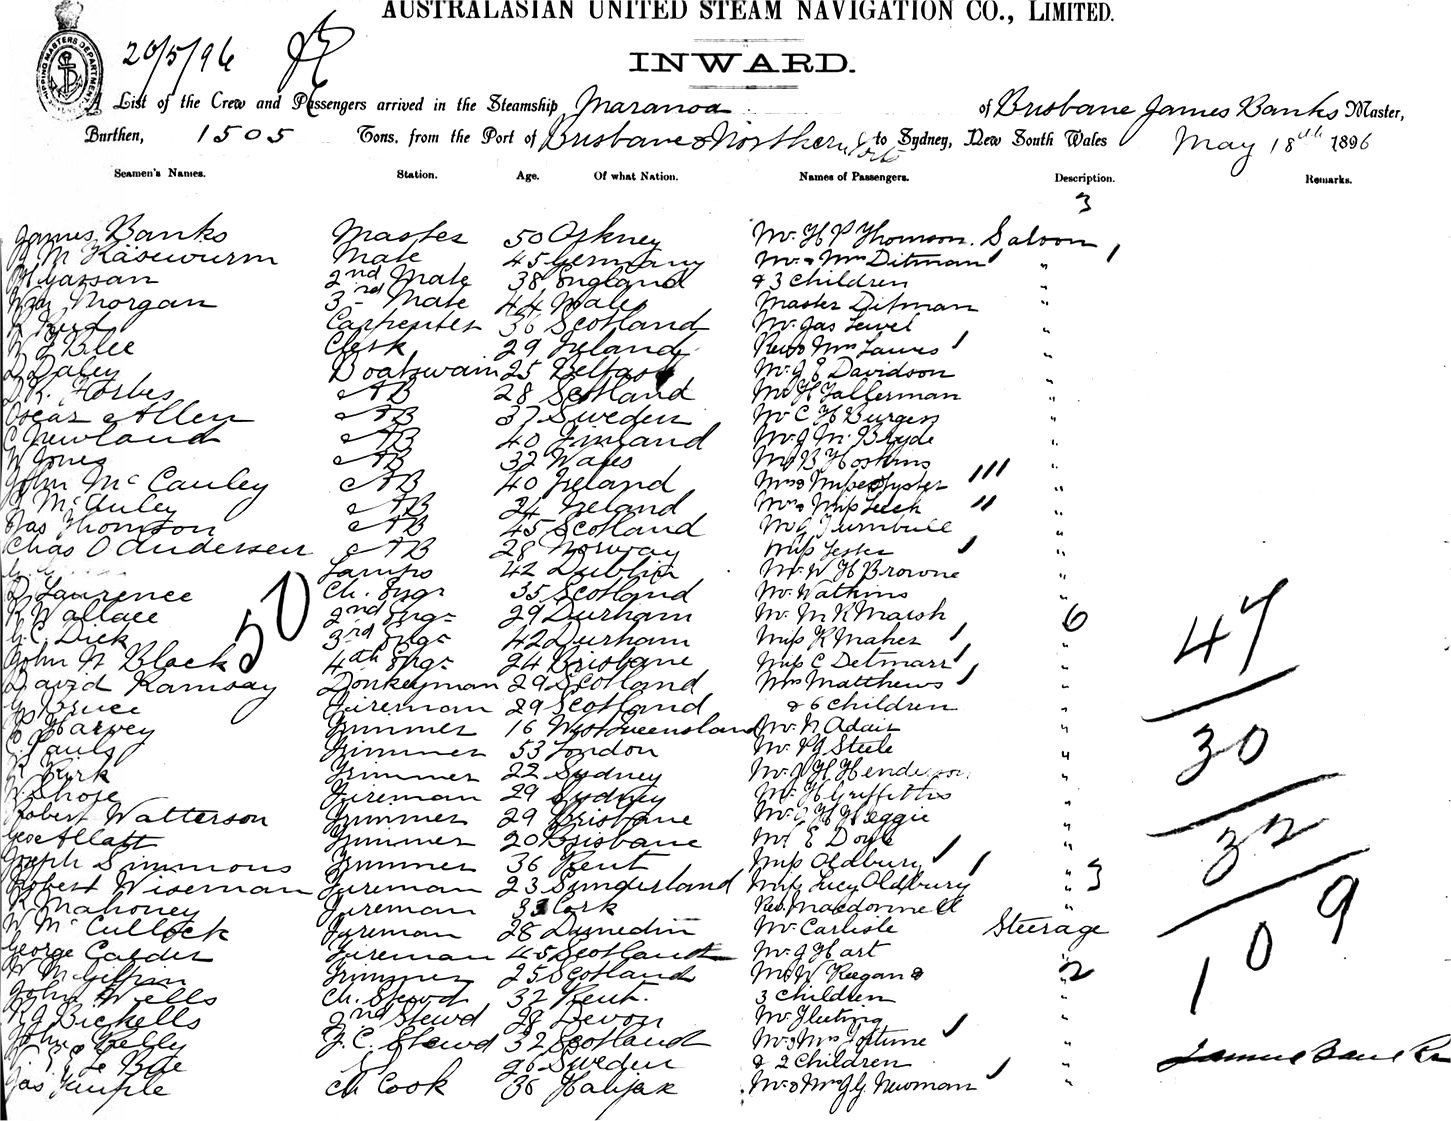 AUSTRALASIAN UNITED STEAM NAVIGATION CO., LIMITED.
20/5/96
INWARD.
A List of the Crew and Passengers arrived in the Steamship Maranoa of Brisbane James Banks Master,
Burthen, 1505 Tons, from the Port of Brisbane & Northern to Sydney, New South Wales May 18th 1896
Seamen's Names. Station. Age. Of what Nation. Names of Passengers. Description. Remarks.
3
James Banks Master 50 Orkney Mr. H P Thomson. Saloon 1
M Käsewurm Mate 45 Germany Mr & Mrs Ditman "
2nd Mate 38 England & 3 children "
Wm Morgan 3rd Mate 44 Wales Master Ditman "
Carpenter 36 Scotland Mr Jas "
Blee Clerk 29 Ireland Mrs Lawes "
D Daley Boatswain 25 Belfast Mr J E Davidson "
D. R. Forbes AB 28 Scotland Mr H Fallerman "
Oscar Allen AB 37 Sweden Mr C H Burgess "
C Newland AB 40 Finland Mr J McBryde "
W Jones AB 32 Wales Mr B Hoskins "
John McCauley AB 40 Ireland Mrs "
McAuley AB 24 Ireland Mrs & Miss "
Jas Thomson AB 45 Scotland Mr G Turnbull "
Chas O Andersen AB 28 Norway Miss Lester "
Lamps 42 Dublin Mr W H Browne "
D Laurence Ch. Engr 35 Scotland Mr Watkins "
R Wallace 2nd Engr 29 Durham Mr M R Marsh 6
G. C. Dick 3rd Engr 42 Durham Miss K Maher "
John N Black 4th Engr 24 Brisbane Miss C Detmars "
50
David Ramsay Donkeyman 29 Scotland Mrs Matthews "
Bruce Fireman 29 Scotland & 6 children "
Harvey Trimmer 16 West Queensland Mr N Adair "
Pauls Trimmer 53 London Mr Steele "
R Kirk Trimmer 22 Sydney Mr J H Henderson "
W Shore Fireman 29 Sydney Mr H Griffiths "
Robert Watterson Trimmer 29 Brisbane Mr J H Heggie "
Geo Allatt Trimmer 20 Brisbane Mr E Doyle "
Joseph Simmons Trimmer 36 Kent Miss Oldbury "
Robert Wiseman Fireman 23 Sunderland Miss Lucy Oldbury " 3
R Mahoney Fireman Cork Rev. Macdonnell "
W McCullock Fireman 28 Dunedin Mr Carlisle Steerage
George Calder Fireman 45 Scotland Mr J Hart "
W McGiffin Trimmer 25 Scotland Mr W Keegan & 2
John Wells Ch. Stewd 37 Kent. 3 children "
R J Bickells 2nd Stewd 28 Devon Mr "
John Kelly F. C. Stewd 32 Scotland Mr & Mrs Fortune "
Le Bae 26 Sweden & 2 children "
Jas Temple Ch Cook 36 Halifax Mr & Mrs J G Newman "
47
30
32
109
James Banks